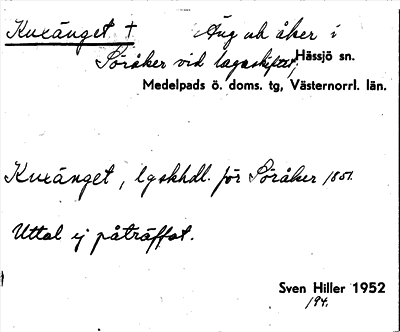 Kuxänget † Äng och åker i
Söråker vid lagaskiftet, Hässjö sn.
Medelpads ö. doms. tg, Västernorrl. län.
Kuxänget, lgskhdl. för Söråker 1851.
Uttal ej påträffat.
Sven Hiller 1952
194.